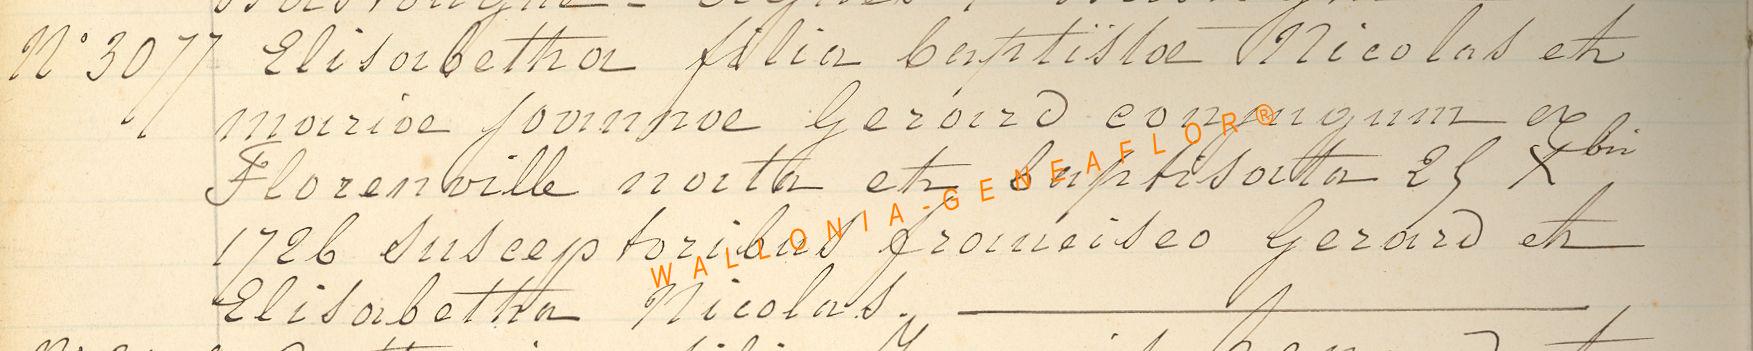 N° 3077 Elisabetha filia baptistæ Nicolas et
mariæ joannæ Gerard conjugum ex
Florenville nata et baptisata 25 Xbri
1726 susceptoribus francisco Gerard et
Elisabetha Nicolas.
WALLONIA-GENEAFLOR®